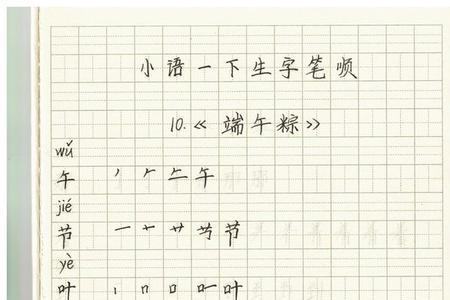 小语一下生字笔顺
10.《端午粽》
wǔ
午 丿 𠂉 二 午
jié
节 一 十 艹 节
yè
叶 丨 口 口 叶 叶